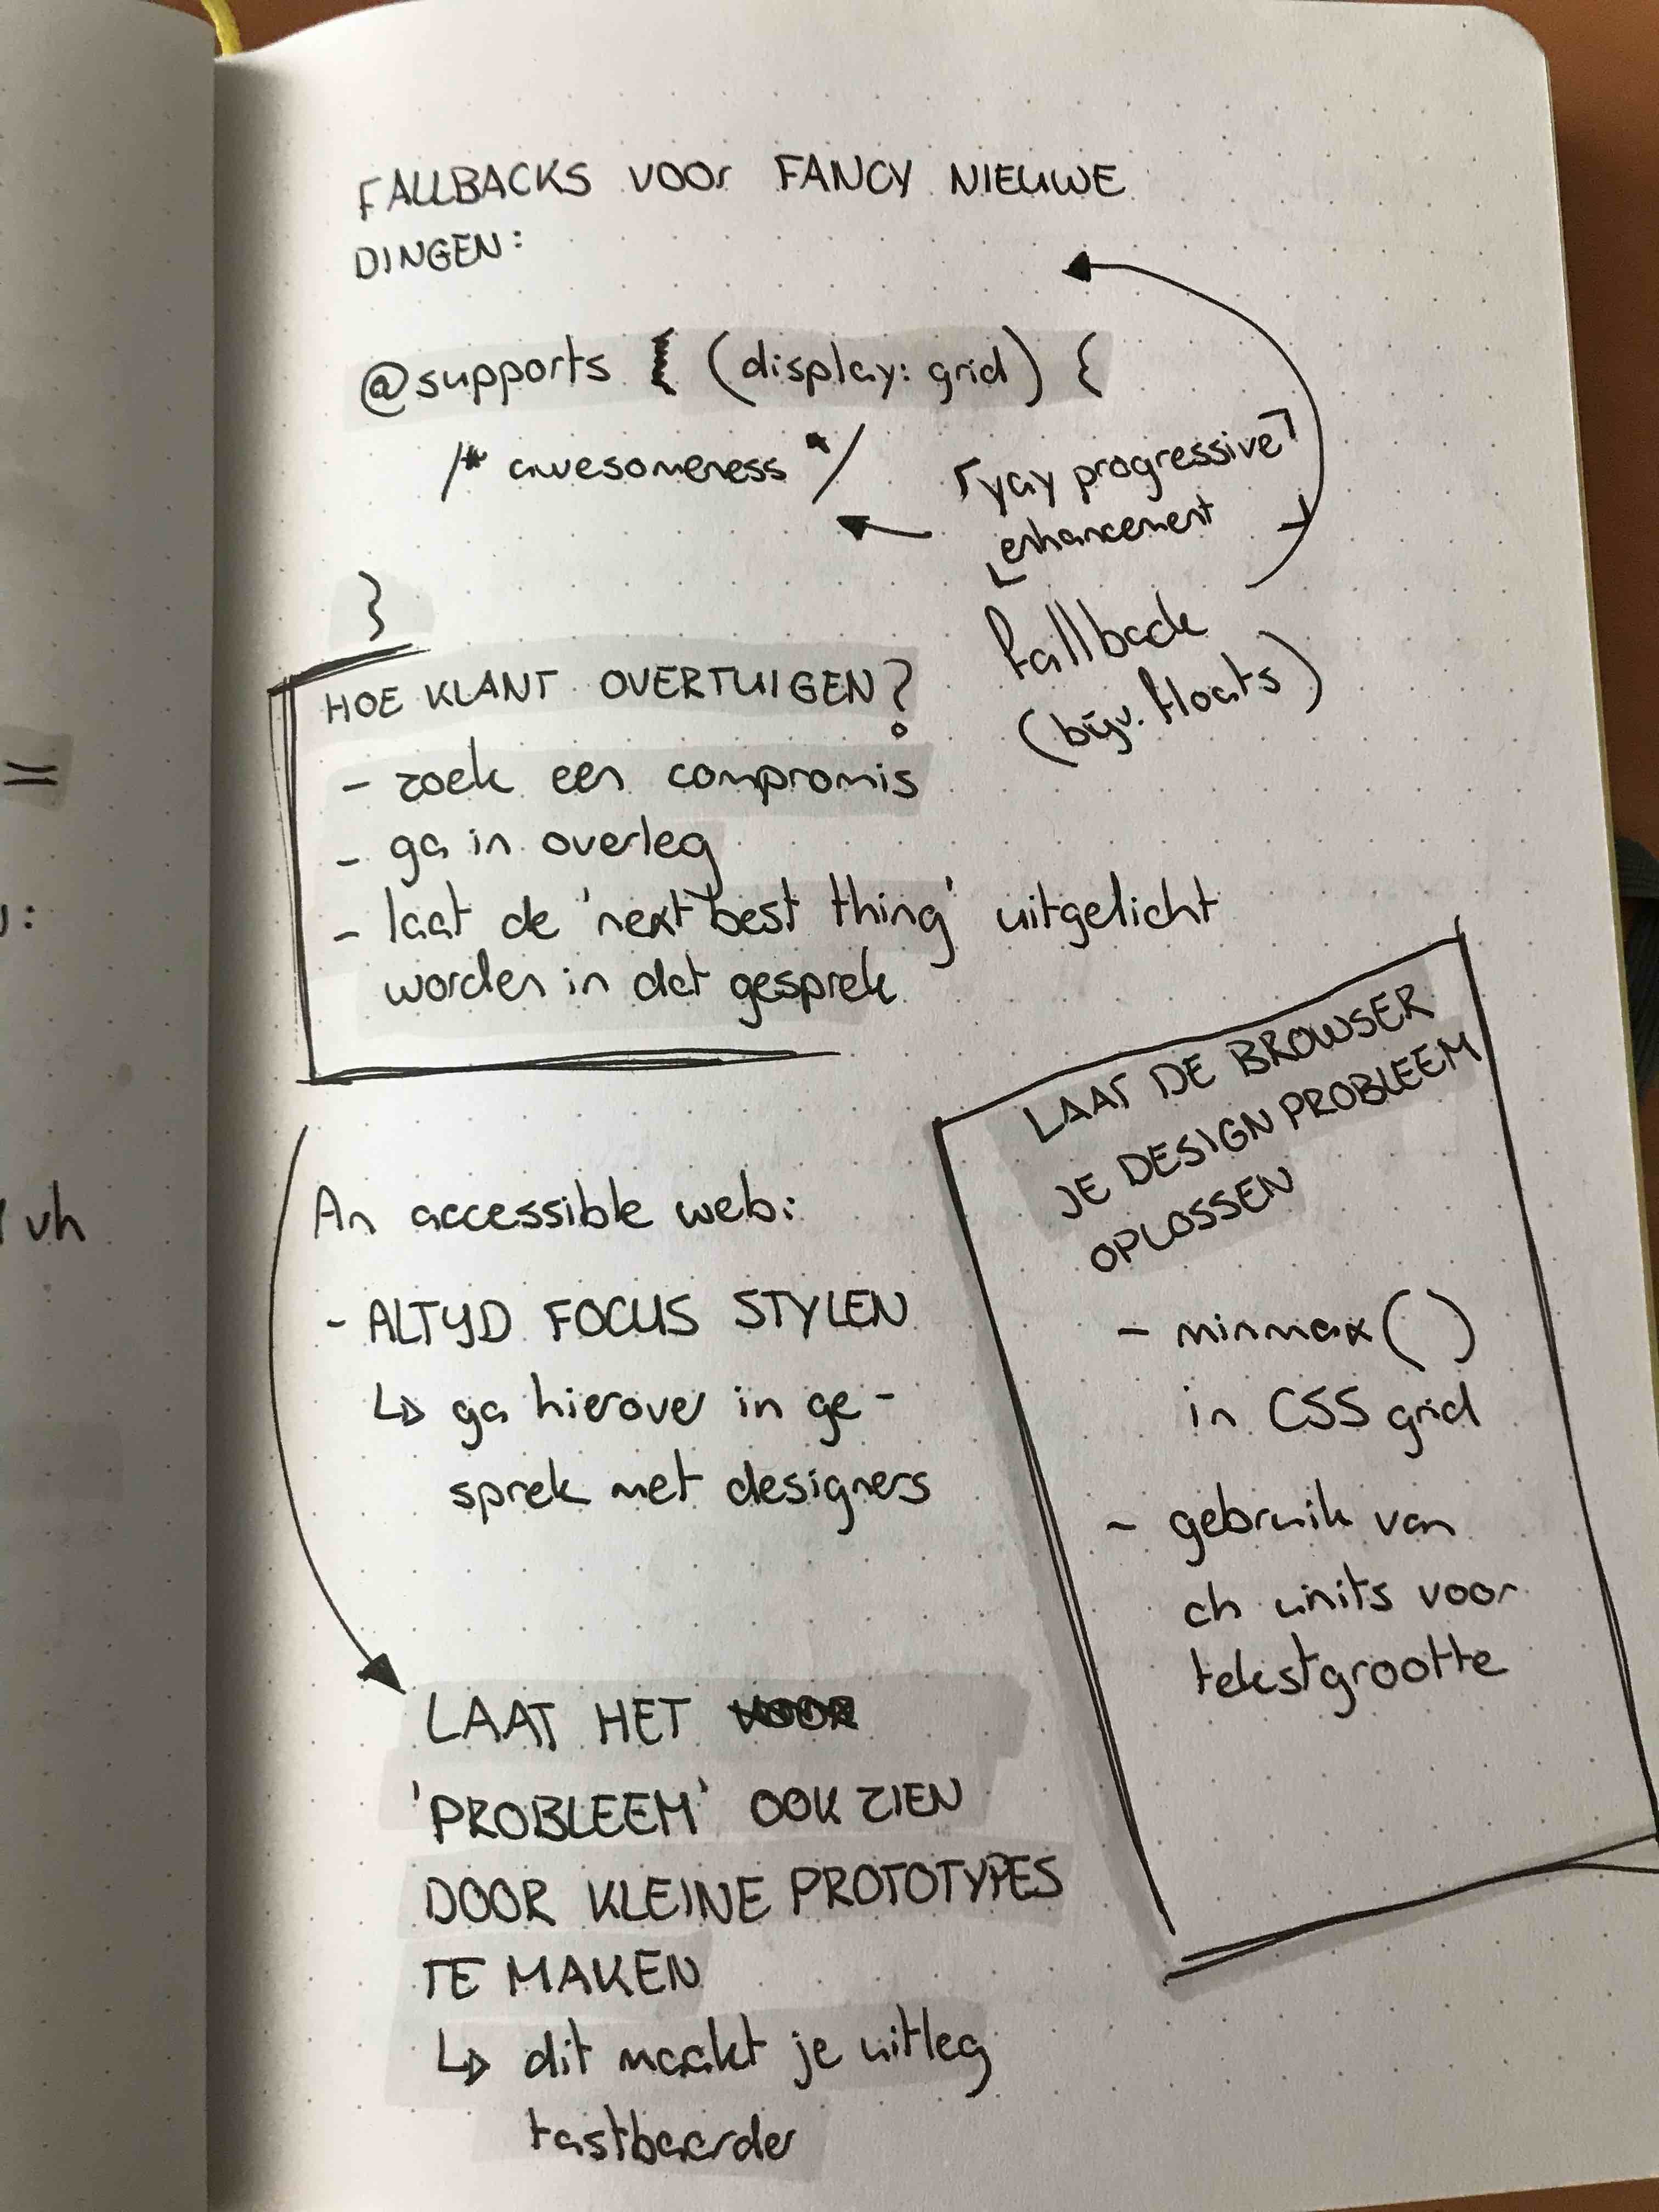 FALLBACKS VOOR FANCY NIEUWE
DINGEN:
@supports (display: grid) {
/* awesomeness */
}
yay progressive
enhancement
fallback
(bijv. floats)
HOE KLANT OVERTUIGEN?
- zoek een compromis
- ga in overleg
- laat de 'next best thing' uitgelicht
worden in dat gesprek
An accessible web:
- ALTIJD FOCUS STYLEN
↳ ga hierover in ge-
sprek met designers
LAAT HET
'PROBLEEM' OOK ZIEN
DOOR KLEINE PROTOTYPES
TE MAKEN
↳ dit maakt je uitleg
tastbaarder
LAAT DE BROWSER
JE DESIGN PROBLEEM
OPLOSSEN
- minmax()
in CSS grid
- gebruik van
ch units voor
tekstgrootte
=
:
vh